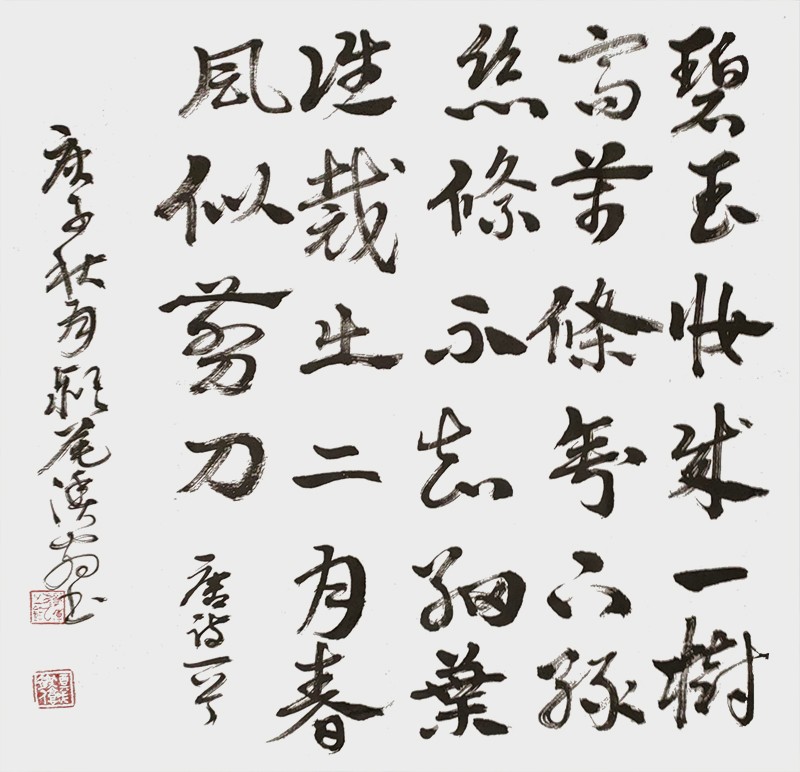 碧玉妝成一樹
高萬條垂下綠
絲條不知細葉
誰裁出二月春
風似剪刀
唐詩一首
庚子秋月 尾溪 書